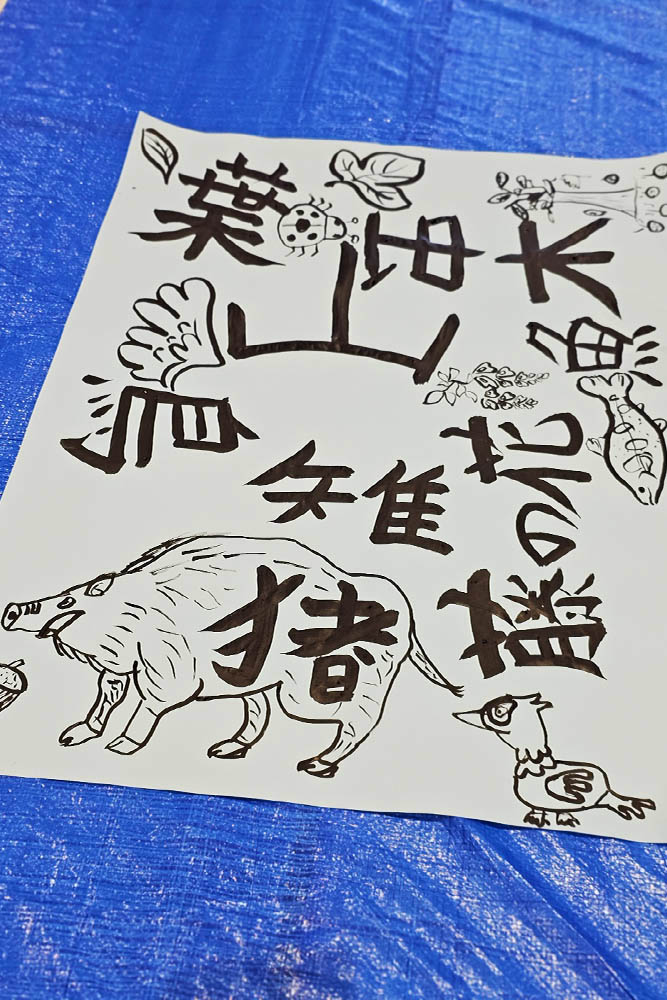 葉
虫
木
山
魚
鳥
雉
藤の花
猪